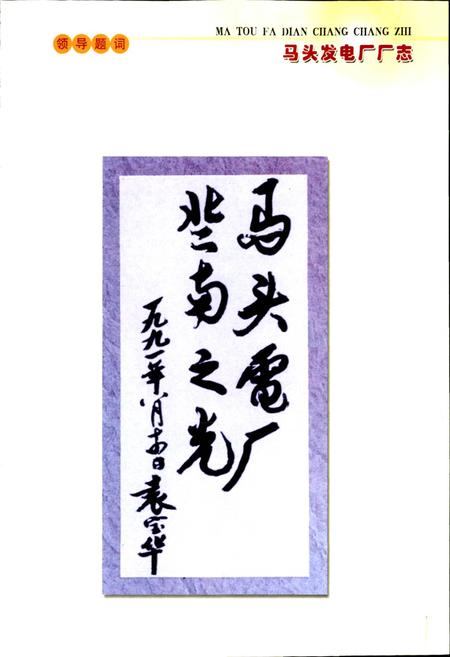 领导题词
MA TOU FA DIAN CHANG CHANG ZHI
马头发电厂厂志
马头電厂
冀南之光
一九九一年八月日 袁宝华